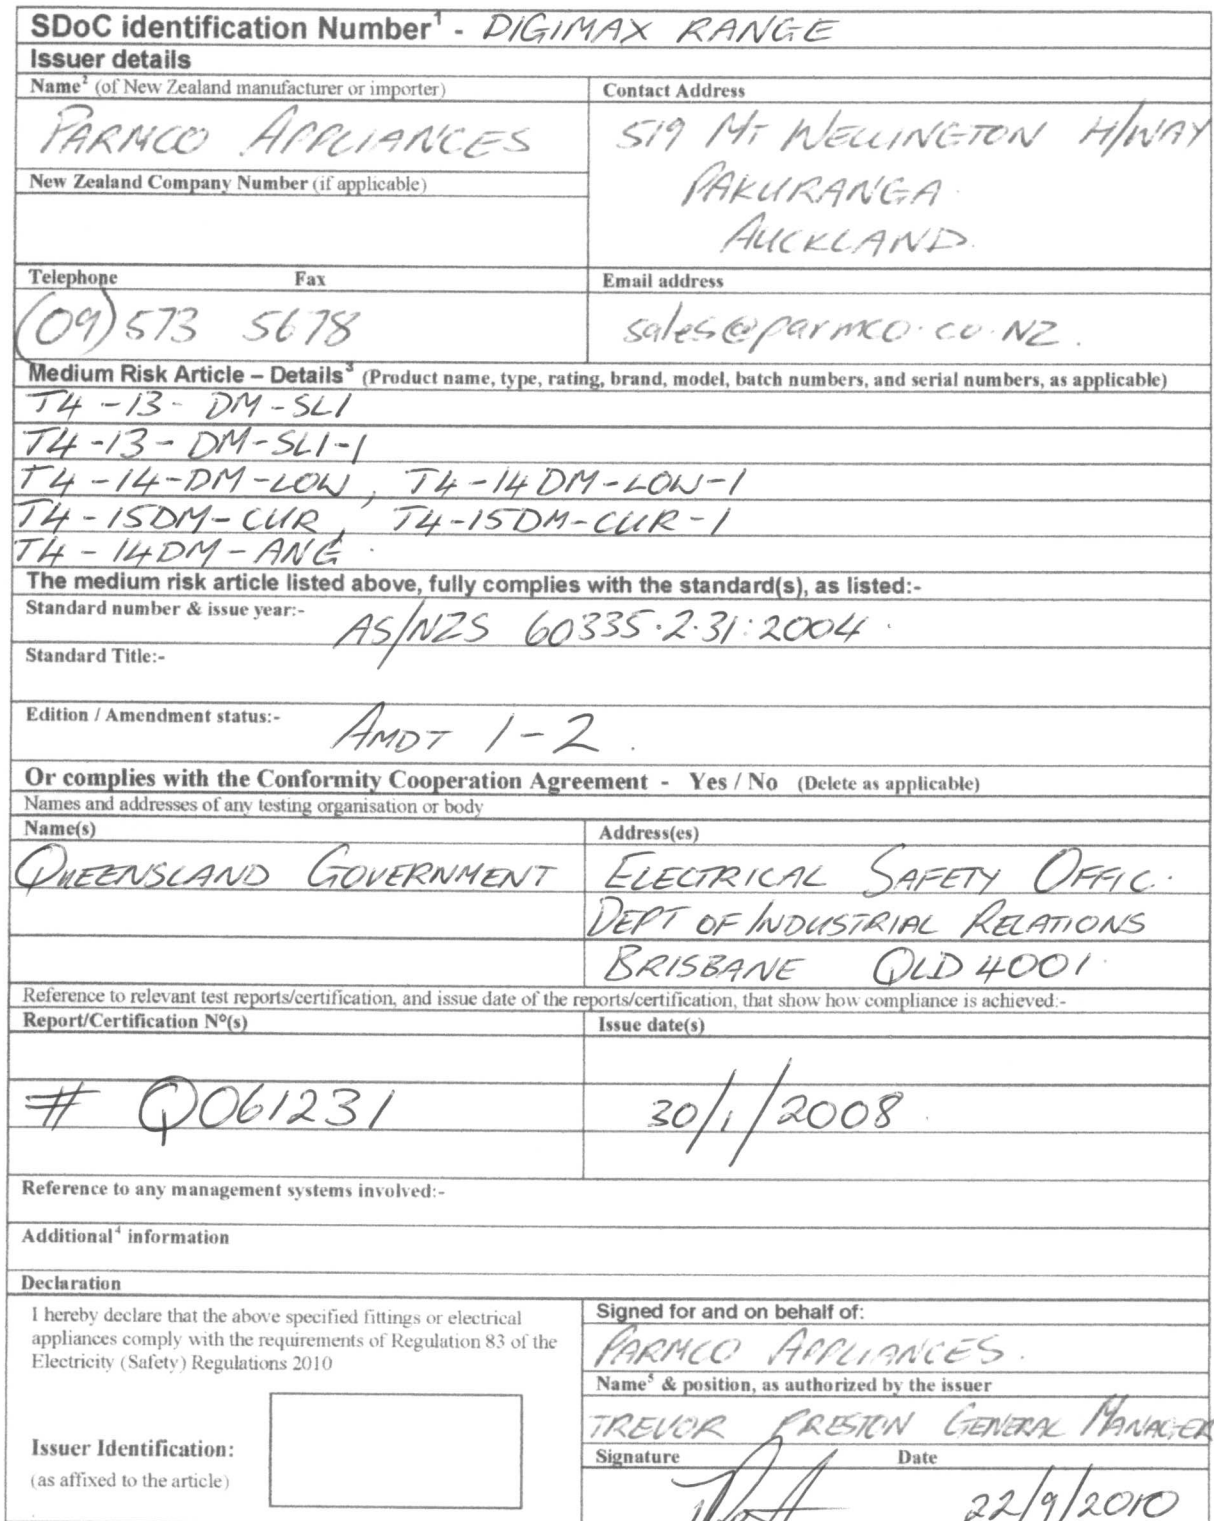 SDoC identification Number¹ - DIGIMAX RANGE
Issuer details
Name² (of New Zealand manufacturer or importer)
PARMCO APPLIANCES
Contact Address
519 MT WELLINGTON H/WAY
PAKURANGA.
AUCKLAND.
New Zealand Company Number (if applicable)
Telephone Fax
(09) 573 5678
Email address
sales@parmco.co.NZ.
Medium Risk Article – Details³ (Product name, type, rating, brand, model, batch numbers, and serial numbers, as applicable)
T4-13-DM-SLI
T4-13-DM-SLI-1
T4-14-DM-LOW, T4-14DM-LOW-1
T4-15DM-CUR, T4-15DM-CUR-1
T4-14DM-ANG.
The medium risk article listed above, fully complies with the standard(s), as listed:-
Standard number & issue year:- AS/NZS 60335.2.31:2004.
Standard Title:-
Edition / Amendment status:- AMDT 1-2.
Or complies with the Conformity Cooperation Agreement - Yes / No (Delete as applicable)
Names and addresses of any testing organisation or body
Name(s)
QUEENSLAND GOVERNMENT
Address(es)
ELECTRICAL SAFETY OFFIC.
DEPT OF INDUSTRIAL RELATIONS
BRISBANE QLD 4001.
Reference to relevant test reports/certification, and issue date of the reports/certification, that show how compliance is achieved:-
Report/Certification Nº(s)
# Q061231
Issue date(s)
30/1/2008.
Reference to any management systems involved:-
Additional⁴ information
Declaration
I hereby declare that the above specified fittings or electrical
appliances comply with the requirements of Regulation 83 of the
Electricity (Safety) Regulations 2010
Issuer Identification:
(as affixed to the article)
Signed for and on behalf of:
PARMCO APPLIANCES.
Name⁵ & position, as authorized by the issuer
TREVOR PRESTON GENERAL MANAGER
Signature Date
22/9/2010